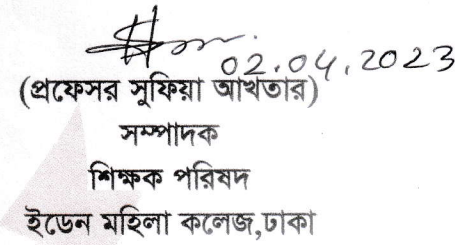 02.04.2023
(প্রফেসর সুফিয়া আখতার)
সম্পাদক
শিক্ষক পরিষদ
ইডেন মহিলা কলেজ,ঢাকা